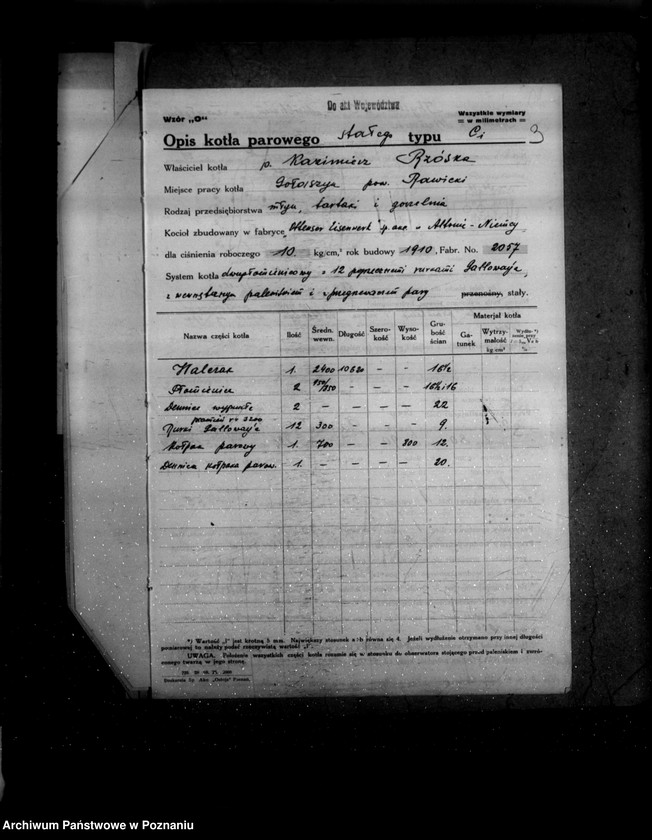 Do akt Województwa
Wzór „O"
Wszystkie wymiary
= w milimetrach =
Opis kotła parowego stałego typu Ci 3
Właściciel kotła p. Kazimierz Rzóska
Miejsce pracy kotła pow. Rawicki
Rodzaj przedsiębiorstwa młyn, tartak i gorzelnia
Kocioł zbudowany w fabryce Ottenser Eisenwerk w Altonie - Niemcy
dla ciśnienia roboczego 10 kg/cm,² rok budowy 1910, Fabr. No. 2057
System kotła dwupłomienicowy z 12 poprzecznemi rurkami Gallowaya,
z wewnętrznym paleniskiem i przegrzewaczem pary przenośny, stały.
Nazwa części kotła Ilość Średn. wewn. Długość Szerokość Wysokość Grubość ścian Materjał kotła
Gatunek Wytrzymałość kg/cm²
Walczak 1. 2400 10620 - - 16½
Płomienice 2 950/850 - - 16½ i 16
Dennice wypukłe 2 - - - 22
promień r = 3200
Rurki Gallowaya 12 300 - 9.
Kołpak parowy 1. 700 - 800 12.
Dennica kołpaka parow. 1. - - - 20.
*) Wartość „l" jest krotną 5 mm. Największy stosunek a : b równa się 4. Jeżeli wydłużenie otrzymano przy innej długości
pomiarowej to należy podać rzeczywistą wartość „l".
UWAGA. Położenie wszystkich części kotła rozumie się w stosunku do obserwatora stojącego przed paleniskiem i zwróconego
twarzą w jego stronę.
Drukarnia Sp. Akc. „Ostoja" Poznań.
Archiwum Państwowe w Poznaniu